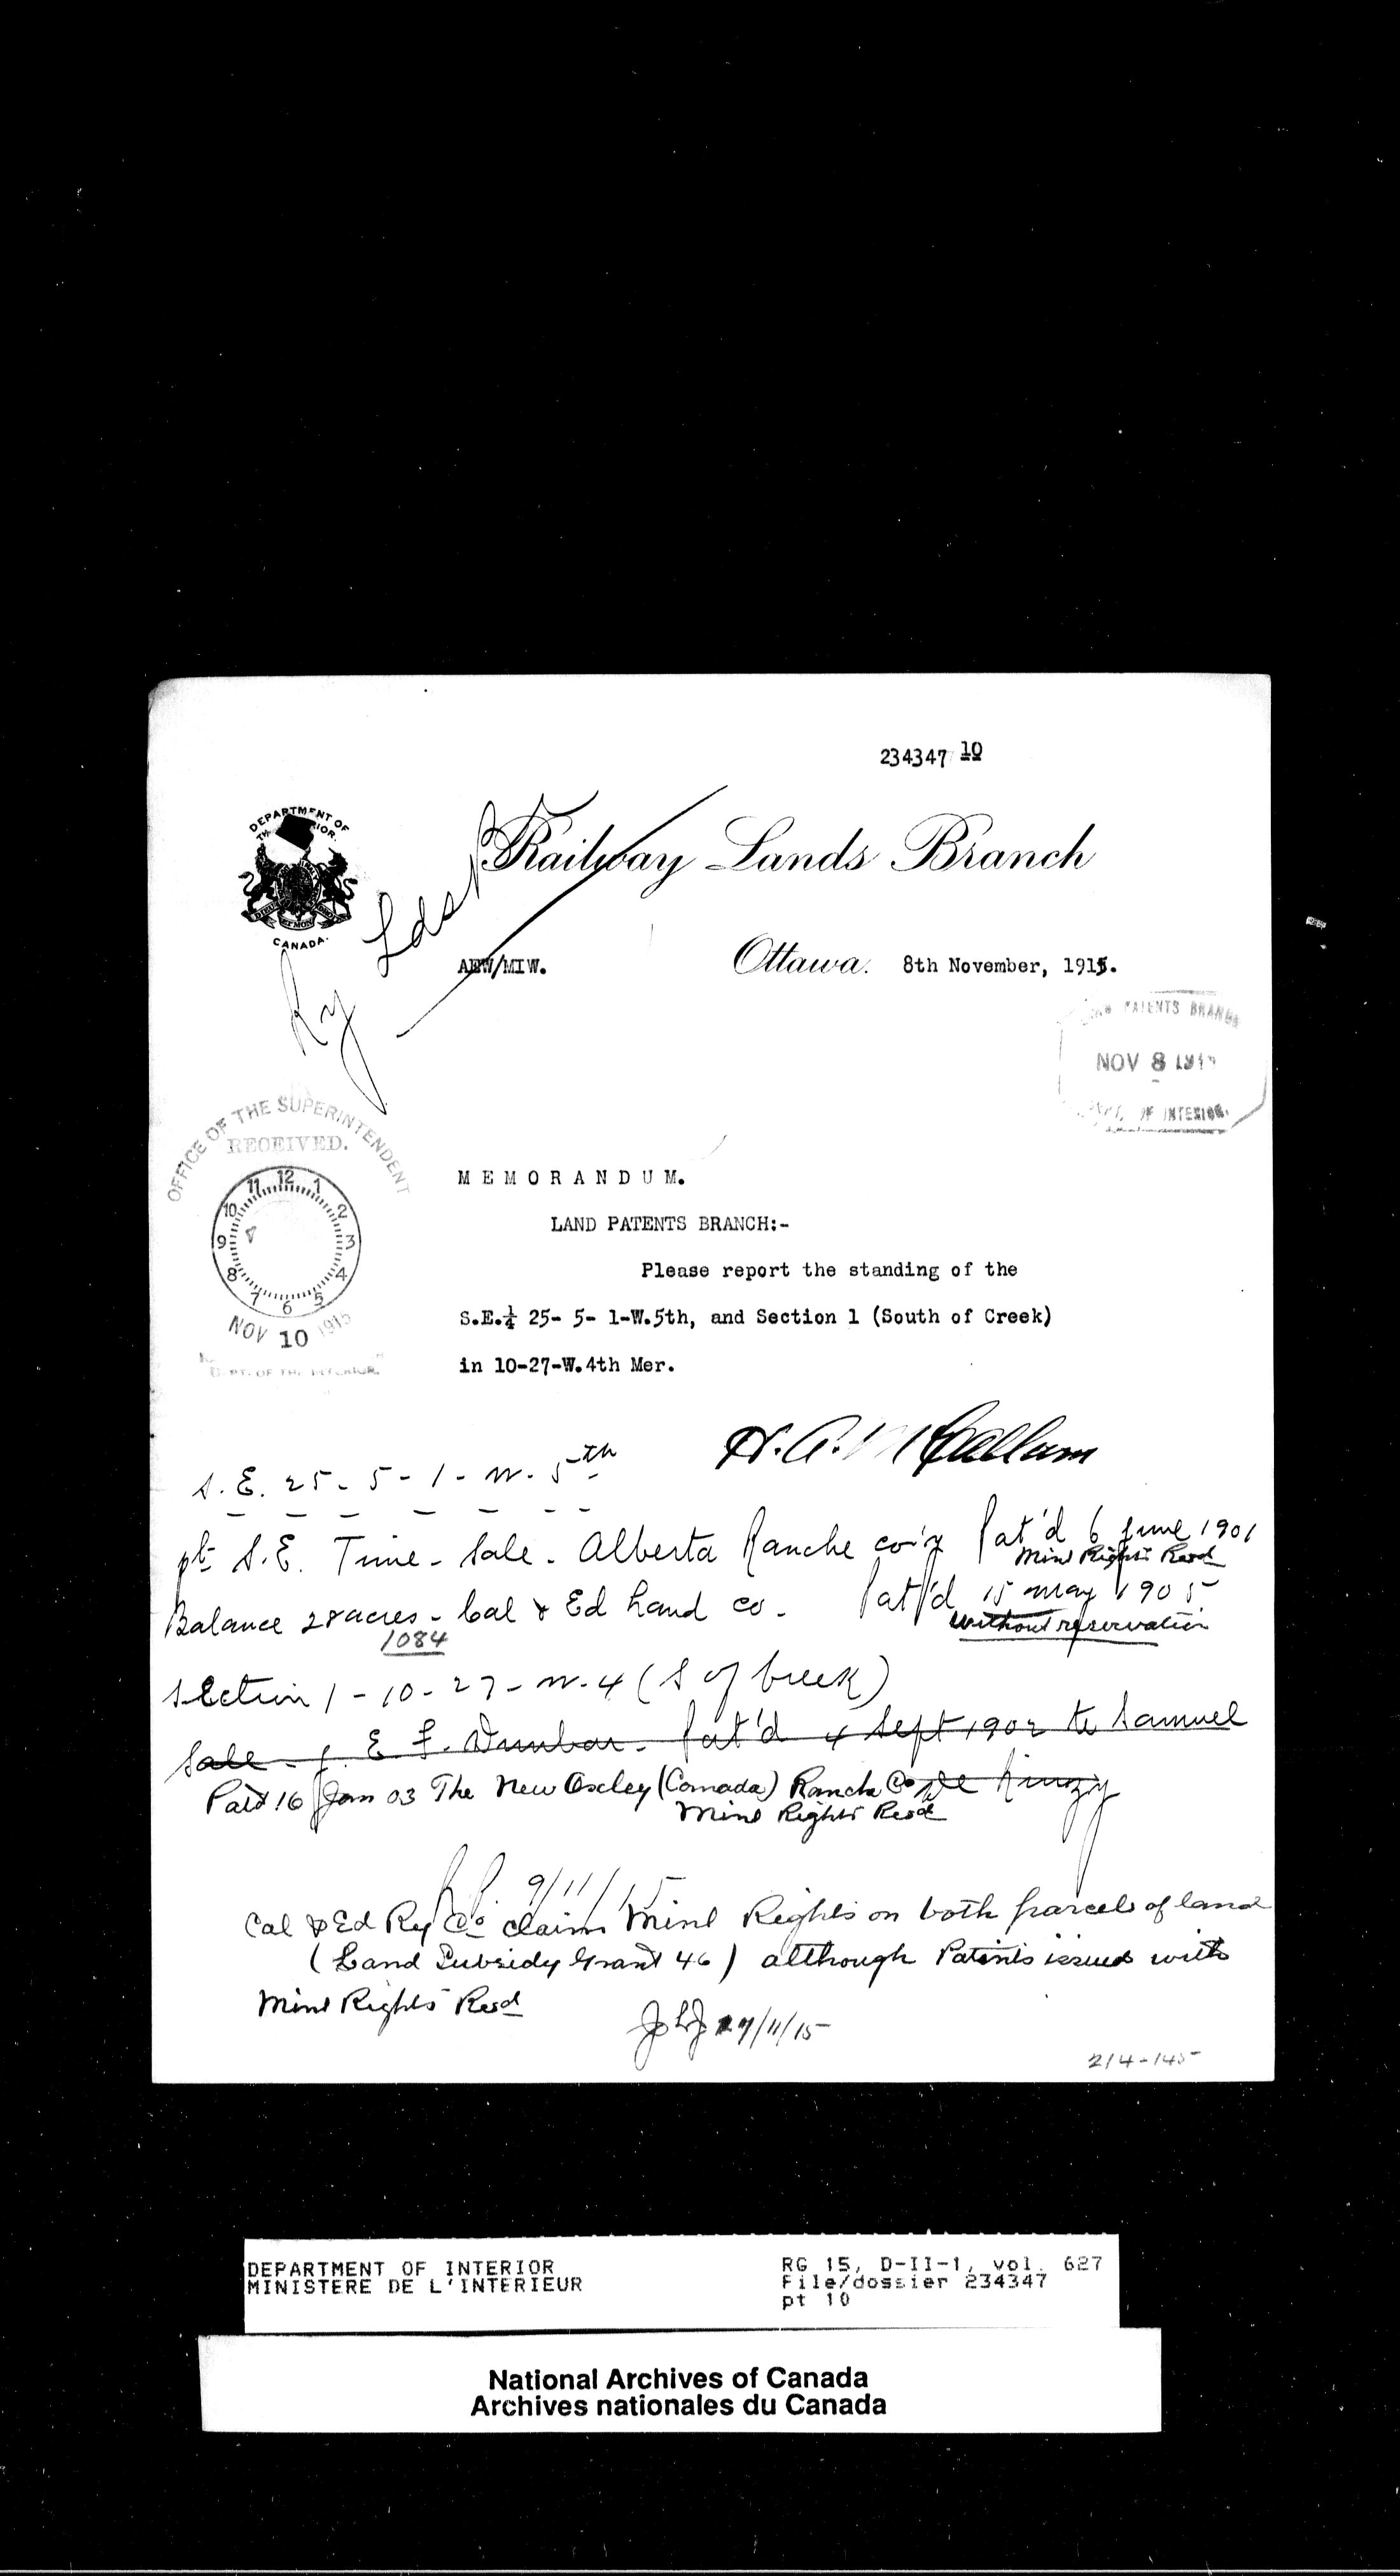 234347 10
DEPARTMENT OF
CANADA.
Railway Lands Branch
Ry Lds B
AEW/MIW.
Ottawa. 8th November, 1915.
PATENTS BRANCH
NOV 8
DEPT. OF INTERIOR.
OFFICE OF THE SUPERINTENDENT
RECEIVED.
12 1 2 3 4 5 6 7 8 9 10 11
NOV 10 1915
DEPT. OF THE INTERIOR.
MEMORANDUM.
LAND PATENTS BRANCH:-
Please report the standing of the
S.E.¼ 25- 5- 1-W.5th, and Section 1 (South of Creek)
in 10-27-W.4th Mer.
S.E. 25- 5- 1- W. 5th
pt S.E. Time - Sale - Alberta Ranche co'y Pat'd 6 June 1901
Minl Rights Resd
Balance 28 acres - Cal & Ed Land co - Pat'd 15 May 1905
1084 without reservation
Section 1 - 10 - 27 - W. 4 (S of Creek)
Sale - E F. Dunbar - Pat'd 4 Sept 1902 to Samuel
Patd 16 Jan 03 The New Oxley (Canada) Ranch Co
Minl Rights Resd
9/11/15
Cal & Ed Ry Co claim Minl Rights on both parcels of land
(Land Subsidy Grant 46) although Patents issued with
Minl Rights Resd
27/11/15
214-145
DEPARTMENT OF INTERIOR
MINISTERE DE L'INTERIEUR
RG 15, D-II-1, vol. 627
File/dossier 234347
pt 10
National Archives of Canada
Archives nationales du Canada